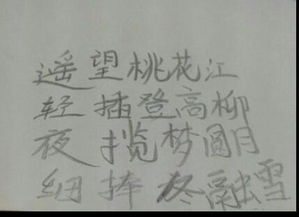 遥望桃花江
轻插登高柳
夜揽梦圆月
细捧冬融雪